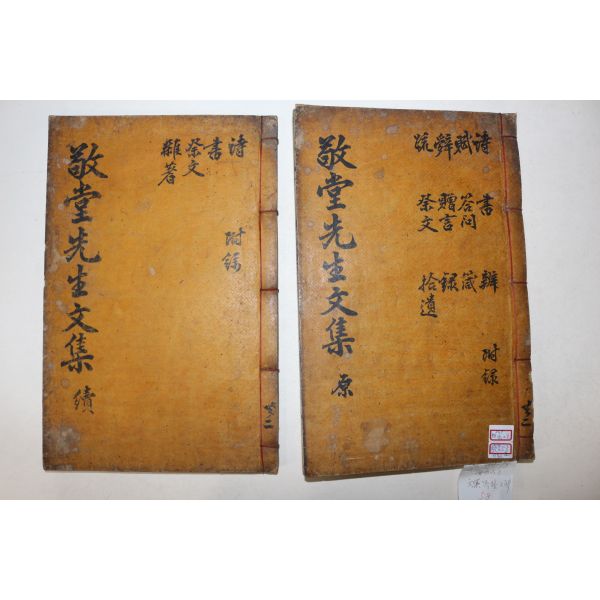 敬堂先生文集 原
詩 書 辨 附錄
賦 答問 箴
辭 贈言 錄
疏 祭文 拾遺
共二
敬堂先生文集 續
詩 附錄
書
祭文
雜著
共二